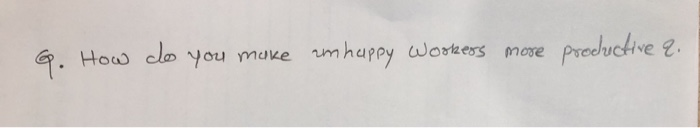 Q. How do you make unhappy workers more productive ?.